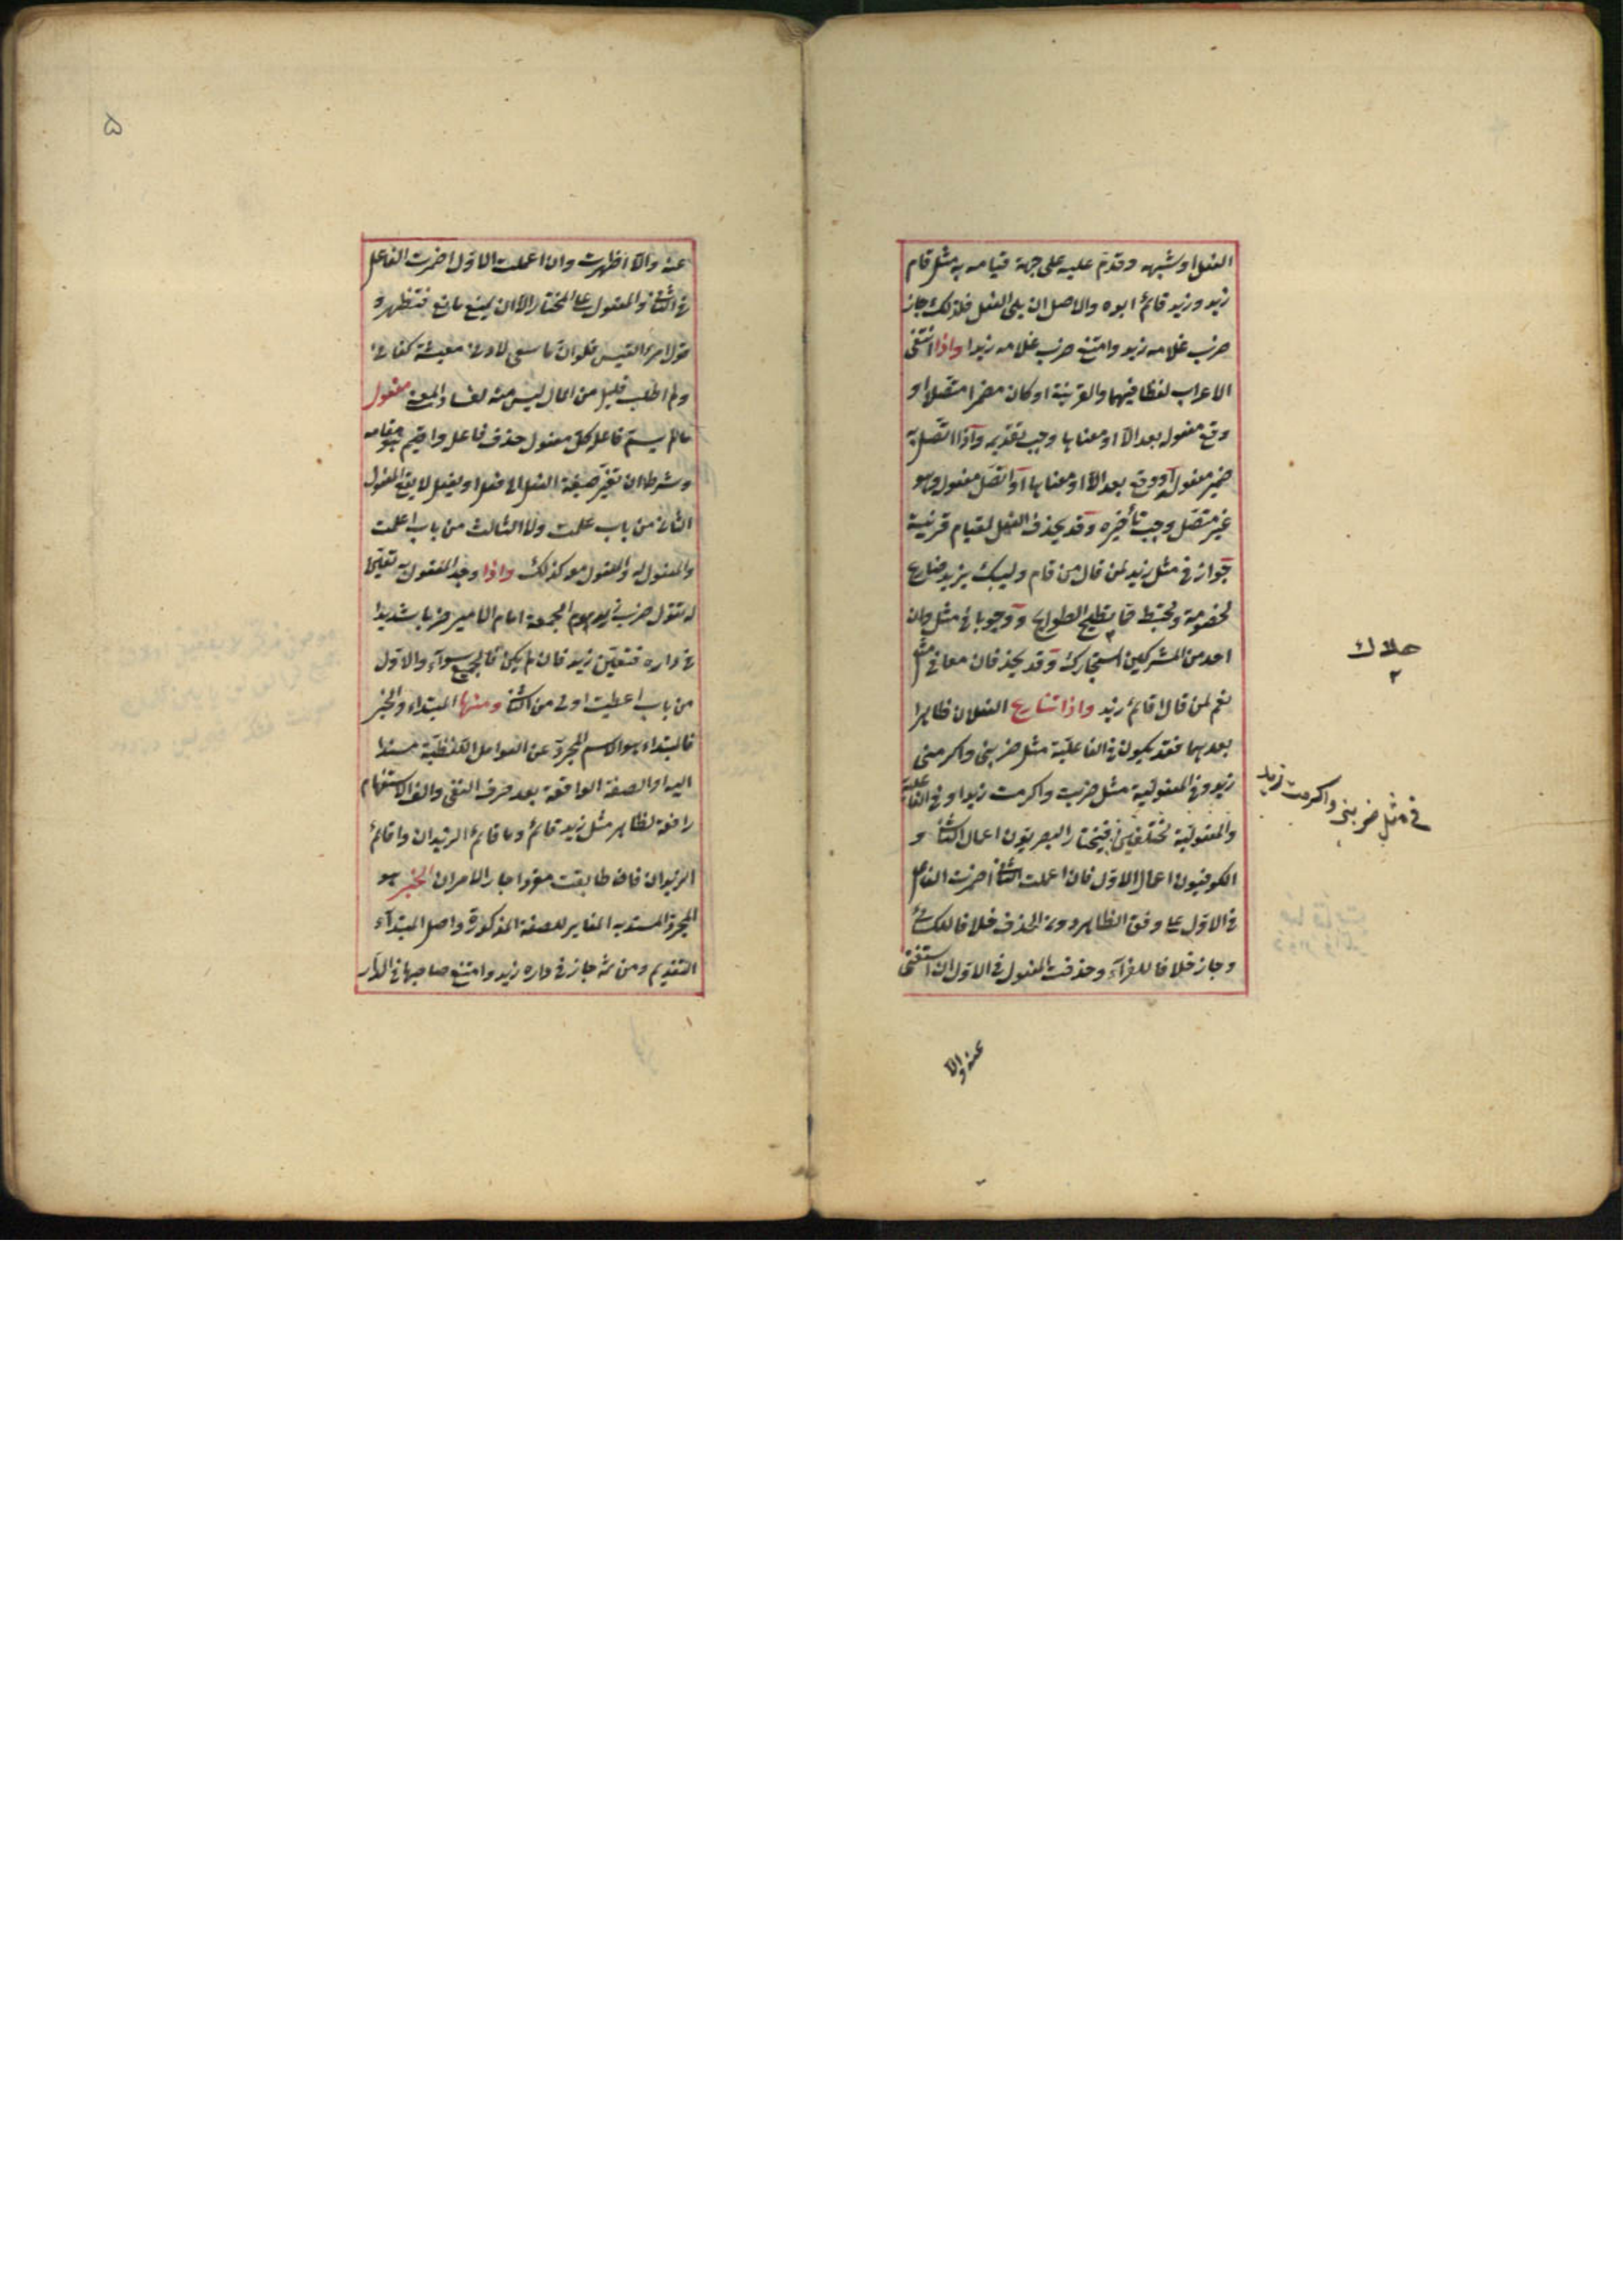 الفعل او شبهه وقدم عليه على جهة قيامه به مثل قام
زيد وزيد قائم ابوه والاصل ان يلى الفعل فلذلك جاز
ضرب غلامه زيد وامتنع ضرب غلامه زيدا واذا انتفى
الاعراب لفظا فيهما والقرينة او كان مضمرا متصلا او
وقع مفعوله بعد الا او معناها وجب تقديمه واذا اتصل به
ضمير مفعول او وقع بعد الا او معناها او اتصل مفعوله وهو
غير متصل وجب تأخيره وقد يحذف الفعل لقيام قرينة
جوازا فى مثل زيد لمن قال من قام وليبك يزيد ضارع
لخصومة ومختبط مما تطيح الطوايح ووجوبا فى مثل وان
احد من المشركين استجارك وقد يحذفان معا فى مثل
نعم لمن قال اقائم زيد واذا تنازع الفعلان ظاهرا
بعدهما فقد يكون فى الفاعلية مثل ضربنى واكرمنى
زيد وفى المفعولية مثل ضربت واكرمت زيدا وفى الفاعلية
والمفعولية مختلفين فيختار البصريون اعمال الثانى و
الكوفيون اعمال الاول فان اعملت الثانى اضمرت الفاعل
فى الاول على وفق الظاهر دون الحذف خلافا للكسائى
وجاز خلافا للفراء وحذفت المفعول فى الاول ان استغنى
فى مثل ضربنى واكرمت زيد
عنه والا
۵
عنه والا اظهرت وان اعملت الاول اضمرت الفاعل
فى الثانى والمفعول على المختار الا ان يمنع مانع فتظهر و
قول امرئ القيس فلو ان ما سعى لادنى معيشة كفانى
ولم اطلب قليل من المال ليس منه لفساد المعنى مفعول
مالم يسم فاعله كل مفعول حذف فاعله واقيم هو مقامه
وشرطه ان تغير صيغة الفعل الى فعل او يفعل لا يقع المفعول
الثانى من باب علمت ولا الثالث من باب اعلمت
والمفعول له والمفعول معه كذلك واذا وجد المفعول به تعين
له تقول ضرب زيد يوم الجمعة امام الامير ضربا شديدا
فى داره فتعين زيد فان لم يكن فالجميع سواء والاول
من باب اعطيت اولى من الثانى ومنها المبتداء والخبر
فالمبتداء هو الاسم المجرد عن العوامل اللفظية مسندا
اليه او الصفة الواقعة بعد حرف النفى والف الاستفهام
رافعة لظاهر مثل زيد قائم وما قائم الزيدان واقائم
الزيدان فان طابقت مفردا جاز الامران الخبر هو
المجرد المسند به المغاير للصفة المذكورة واصل المبتداء
التقديم ومن ثم جاز فى داره زيد وامتنع صاحبها فى الدار